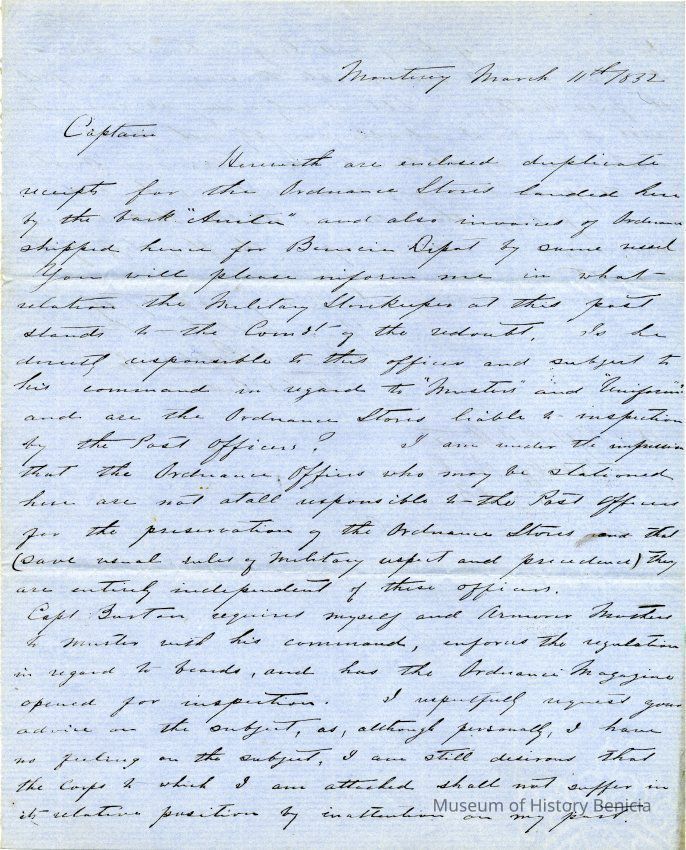 Monterey March 11th 1852
Captain
Herewith are enclosed duplicate
receipts for the Ordnance Stores landed here
by the bark "Anita" and also invoices of Ordnance
shipped hence for Benicia Depot by same vessel
You will please inform me in what
relation the Military Storekeeper at this post
stands to the Comdt of the redoubt. Is he
directly responsible to this officer and subject to
his command in regard to "Musters" and "Uniform"
and are the Ordnance Stores liable to inspection
by the Post Officers? I am under the impression
that the Ordnance Officers who may be stationed
here are not atall responsible to the Post Officers
for the preservation of the Ordnance Stores and that
(save usual rules of Military and precedence) they
are entirely independent of these officers.
Capt Burton requires myself and Armorer
to muster with his command, enforces the regulation
in regard to beards, and has the Ordnance Magazine
opened for inspection. I respectfully request your
advice on the subject, as, although personally, I have
no feeling on the subject, I am still desirous that
the Corps to which I am attached shall not suffer in
its relative position by inattention on my part
Museum of History Benicia